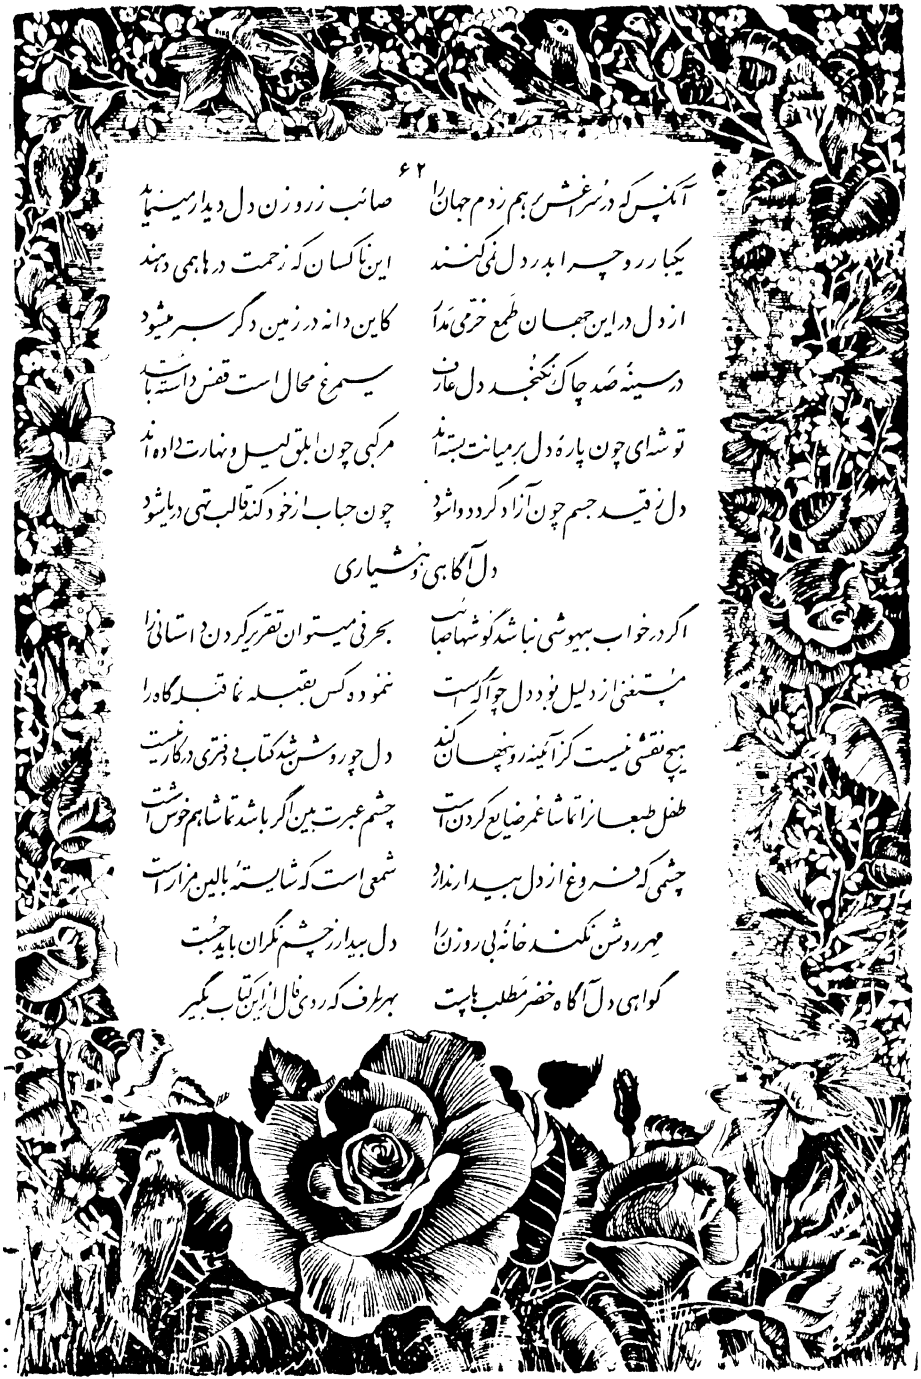 ۶۲
آنکس که در سراغش بر هم زدم جهان را    صائب ز روزن دل دیدار مینماید
یکبار رو چرا بدر دل نمی‌کنند    این ناکسان که زحمت درها همی دهند
از دل در این جهان طمع خرمی مدار    کاین دانه در زمین دگر سبز میشود
در سینهٔ صد چاک نگنجد دل عارف    سیمرغ محال است قفس داشته باشد
توشه‌ای چون پارهٔ دل بر میانت بسته‌اند    مرکبی چون ابلق لیل و نهارت داده‌اند
دل ز قید جسم چون آزاد گردد وا شود    چون حباب از خود کند قالب تهی دریا شود
دل آگاهی و هشیاری
اگر در خواب بیهوشی نباشد گوشها صائب    بحرفی میتوان تقریر کردن داستانی را
مستغنی از دلیل بود دل چو آگه است    ننموده کس بقبله نما قبله گاه را
هیچ نقشی نیست کز آئینه رو پنهان کند    دل چو روشن شد کتاب و دفتری در کار نیست
طفل طبعانرا تماشا عمر ضایع کردن است    چشم عبرت بین اگر باشد تماشا هم خوش است
چشمی که فروغ از دل بیدار ندارد    شمعی است که شایستهٔ بالین مزار است
مهر روشن نکند خانهٔ بی روزن را    دل بیدار ز چشم نگران باید جست
گواهی دل آگاه خضر مطلب ماست    بهر طرف که روی فال از این کتاب بگیر